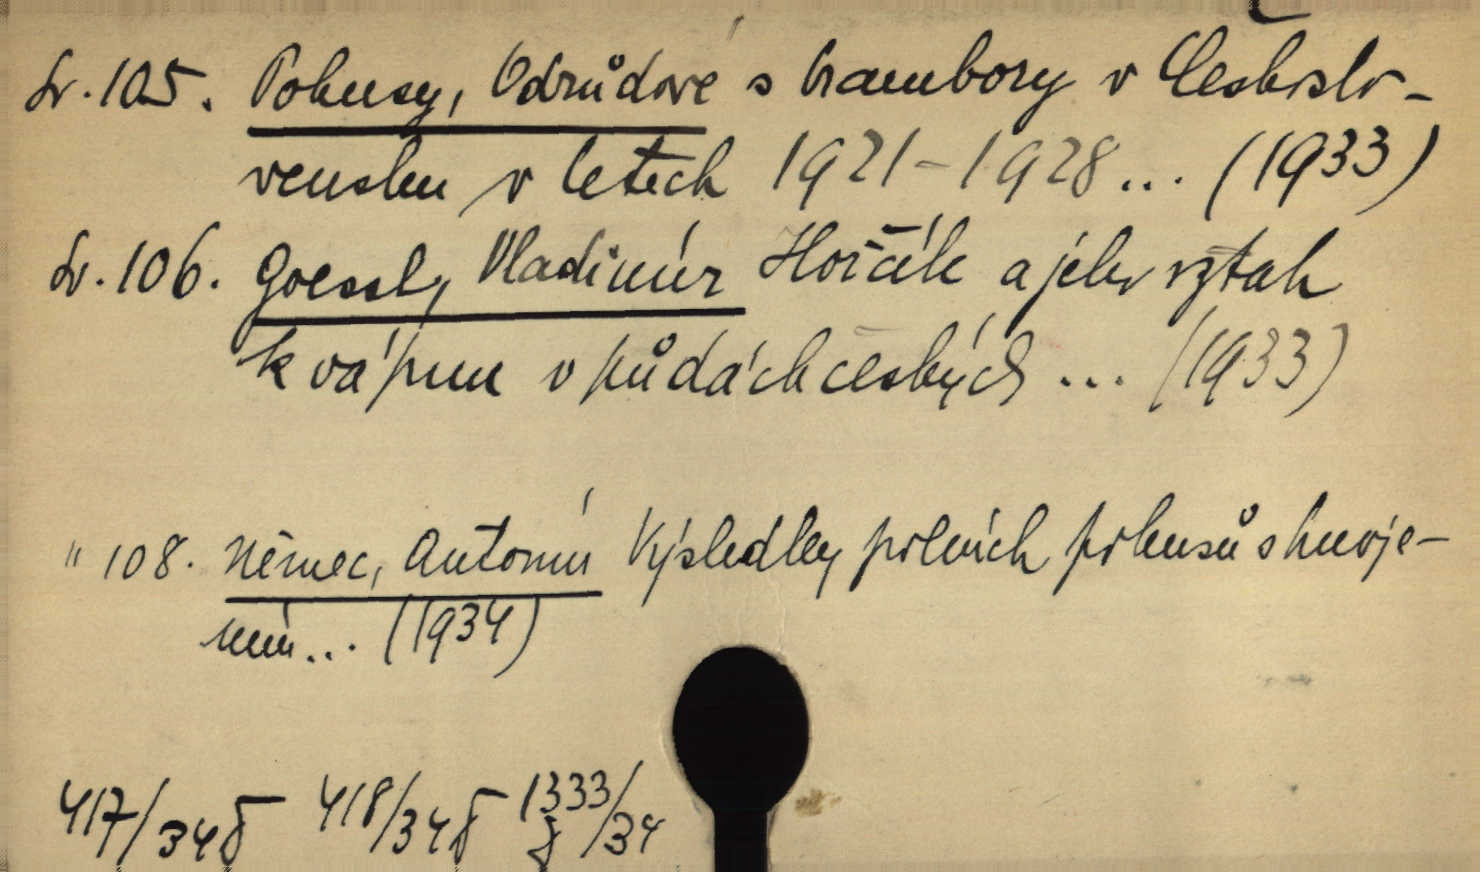 Sv. 105. Pokusy, Odrůdové s brambory v Českoslo-
vensku v letech 1921-1928... (1933)
Sv. 106. Goessl, Vladimír Hořčík a jeho vztah
k vápnu v půdách českých ... (1933)
" 108. Němec, Antonín Výsledky polních pokusů s hnoje-
ním... (1934)
417/34 418/34 1333/34